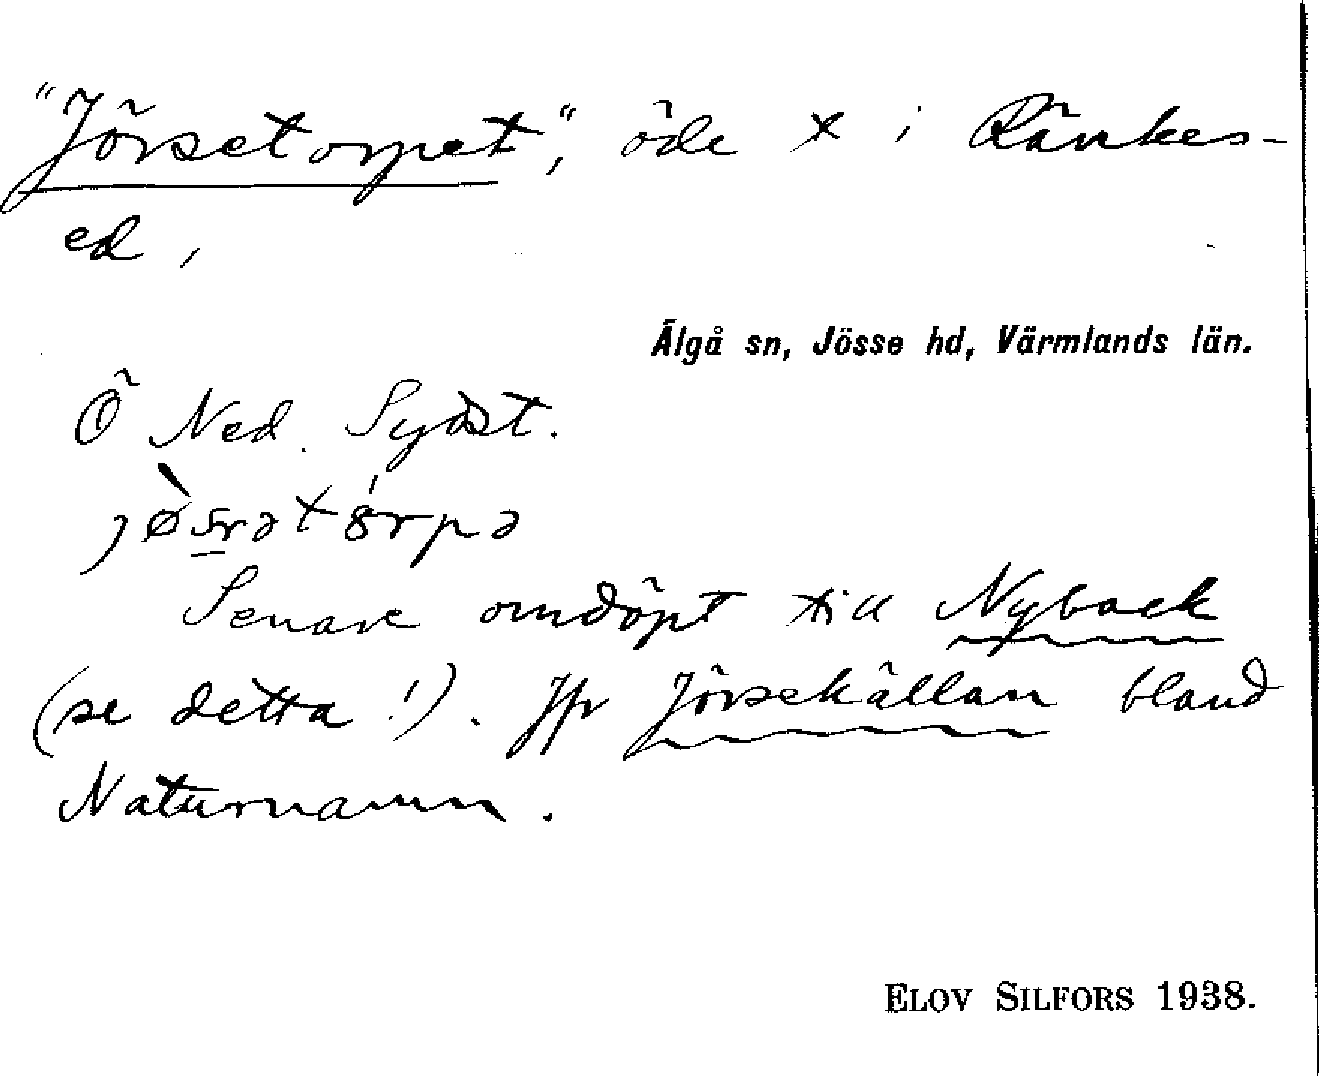 "Jörsetorpet", öde x i Ränkes-
ed,
Älgå sn, Jösse hd, Värmlands län.
Ö Ned. Sydöst.
Senare omdöpt till Nyback
(se detta!). Jfr Jörsekällan bland
Naturnamn.
ELOV SILFORS 1938.